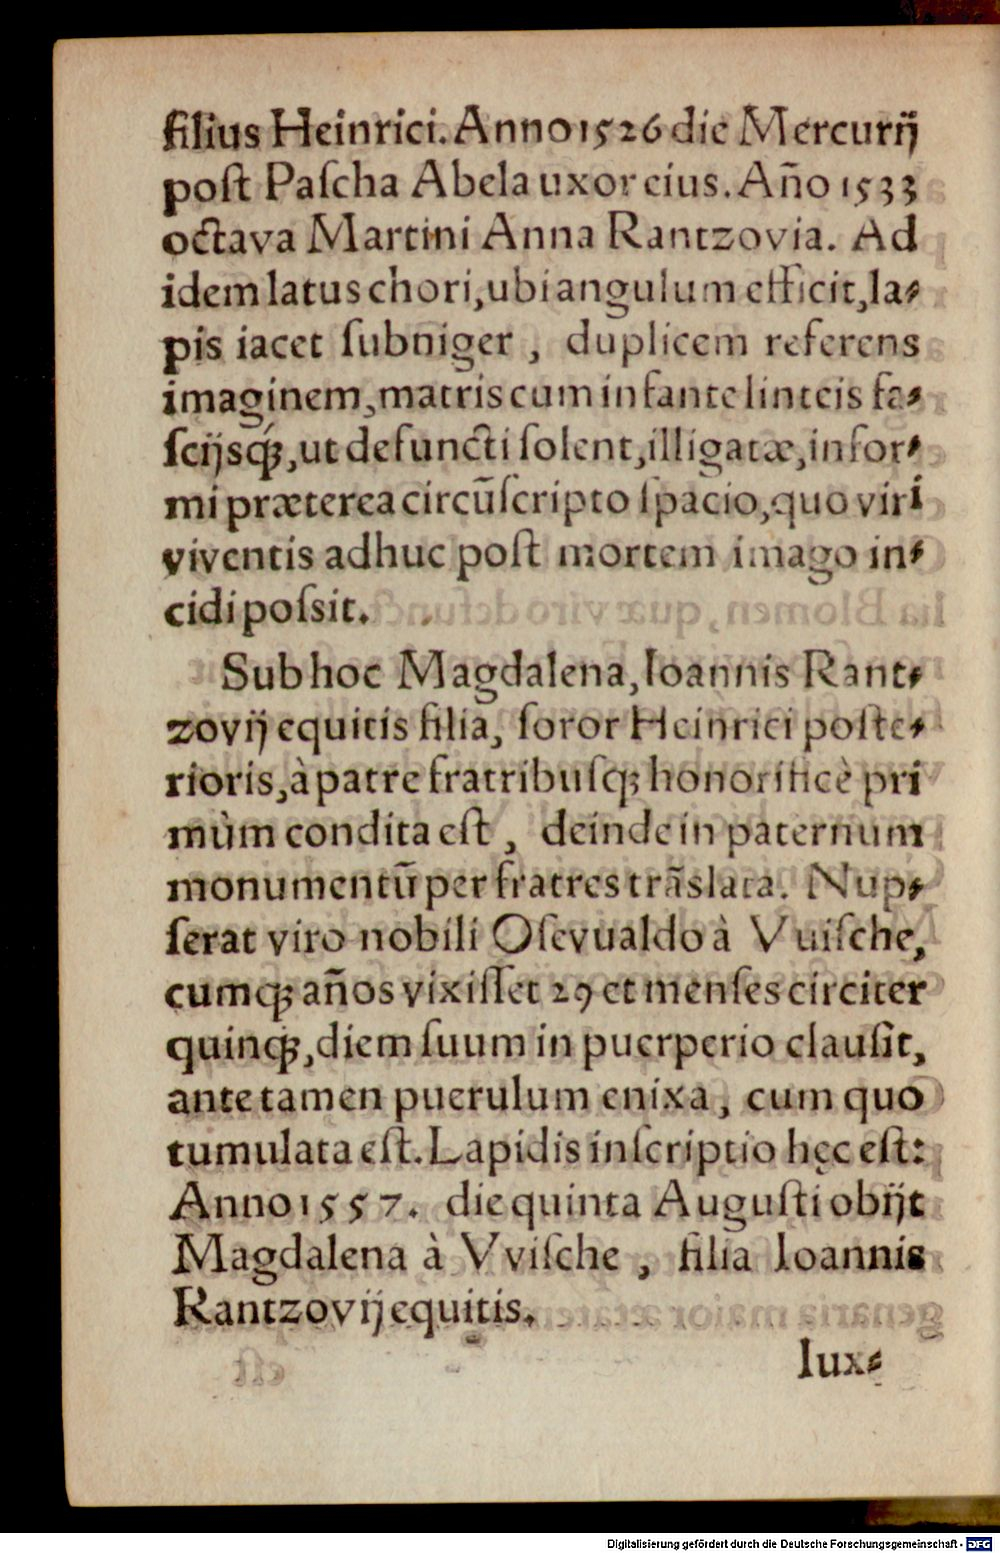 filius Heinrici. Anno 1526 die Mercurij
poſt Paſcha Abela uxor eius. Año 1533
octava Martini Anna Rantzovia. Ad
idem latus chori, ubi angulum efficit, la⸗
pis iacet ſubniger , duplicem referens
imaginem, matris cum infante linteis fa⸗
ſcijsq́ꝫ, ut defuncti ſolent, illigatæ, infor⸗
mi præterea circũſcripto ſpacio, quo viri
viventis adhuc poſt mortem imago in⸗
cidi poſsit.
Sub hoc Magdalena, Ioannis Rant⸗
zovij equitis filia, ſoror Heinrici poſte⸗
rioris, à patre fratribuſqꝫ honorificè pri
mùm condita eſt , deinde in paternum
monumentũ per fratres trãslata. Nup⸗
ſerat viro nobili Oſevualdo à Vuiſche,
cumqꝫ años vixiſſet 29 et menſes circiter
quinqꝫ, diem ſuum in puerperio clauſit,
ante tamen puerulum enixa , cum quo
tumulata eſt. Lapidis inſcriptio hęc eſt:
Anno 1557. die quinta Auguſti obijt
Magdalena à Vviſche , filia Ioannis
Rantzovij equitis.
Iux⸗
Digitalisierung gefördert durch die Deutsche Forschungsgemeinschaft - DFG